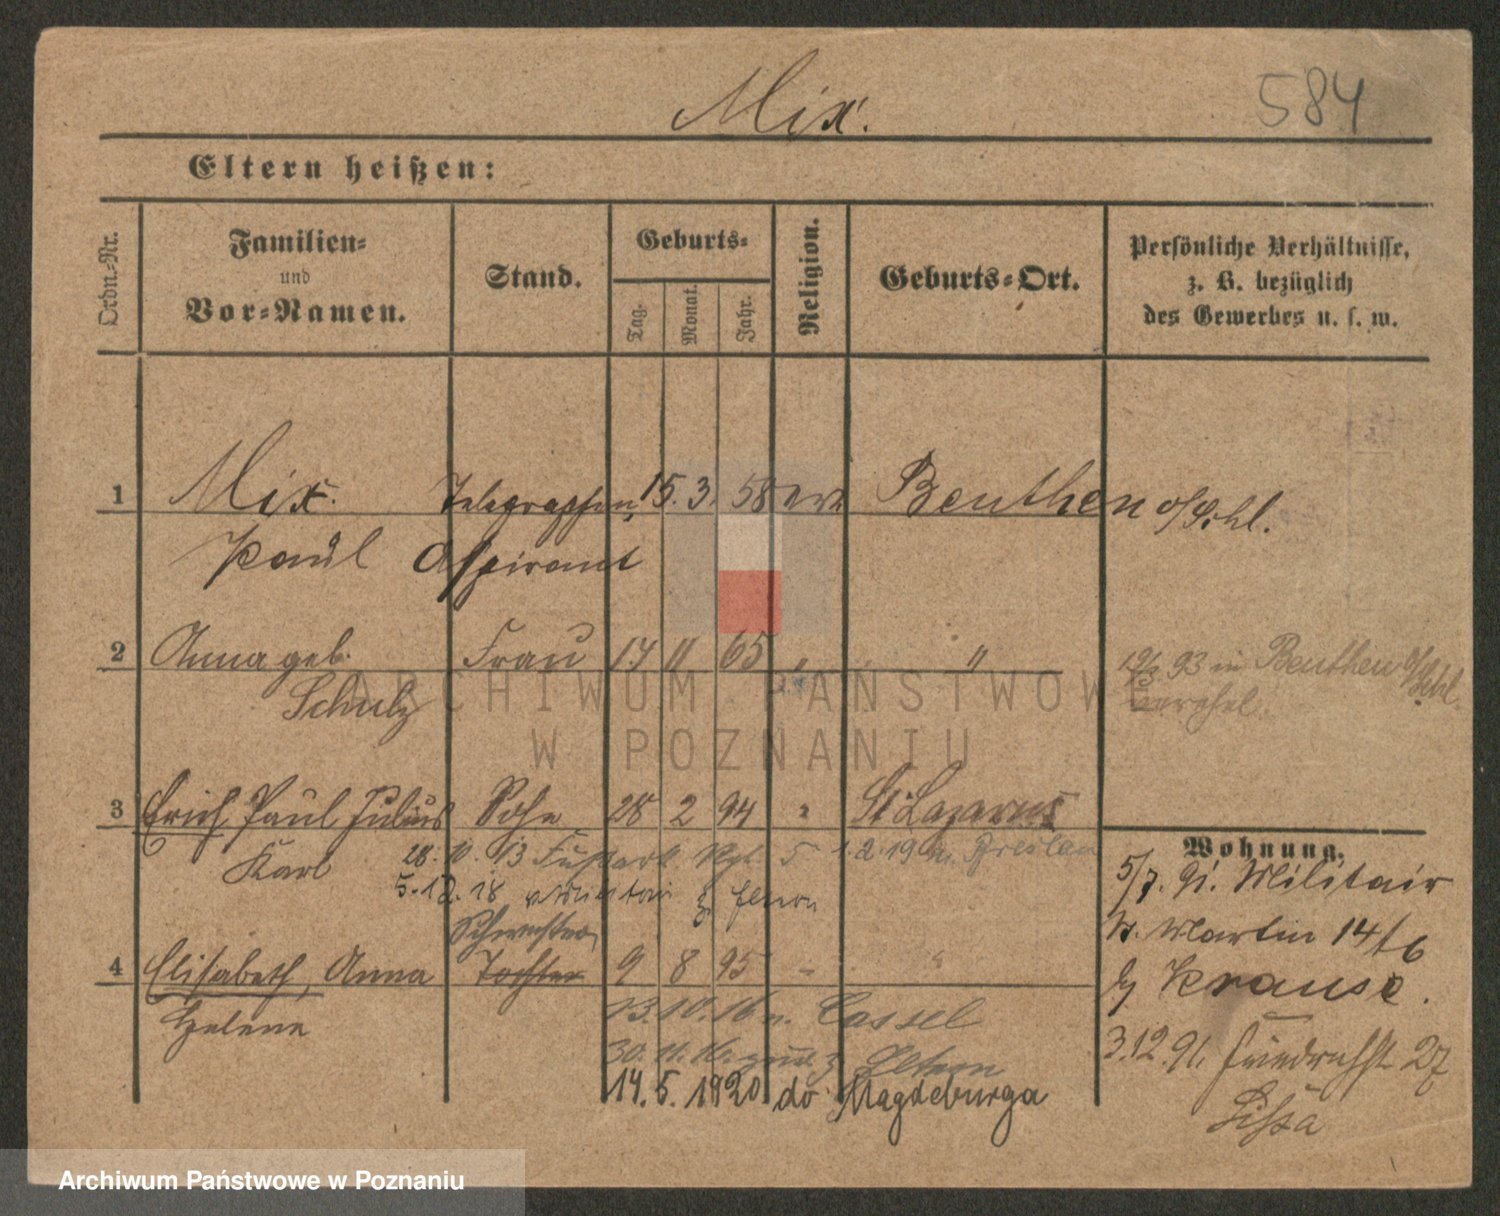 Mix.
584
Eltern heißen:
Ordn.-Nr.
Familien-
und
Vor-Namen.
Stand.
Geburts-
Tag.
Monat.
Jahr.
Religion.
Geburts-Ort.
Persönliche Verhältnisse,
z. B. bezüglich
des Gewerbes u. s. w.
1 Mix. Telegraphen 15. 3. 58 Beuthen o/Schl.
Paul Aspirant
2 Anna geb. Frau 17 11 65 " " 93 in Beuthen o/Schl.
Schulz
ARCHIWUM PAŃSTWOWE
W POZNANIU
3 Erich Paul Julius Sohn 28 2 94 " St. Lazarus
Karl 28. 10. 13 Fußart. Rgt. 5 Breslau
5. 12. 18 Militair z. Eltern
Schwester
4 Elisabeth, Anna Tochter 9 8 95 " "
Helene
13. 10. 16 n. Cassel
30. 11. 16. zur. z. Eltern
14. 5. 1920 do Magdeburga
Wohnung.
5/7. 91. Militair
St. Martin 14/16
b/ Krause.
3.12.91. Friedrichstr. 27
Lissa
Archiwum Państwowe w Poznaniu